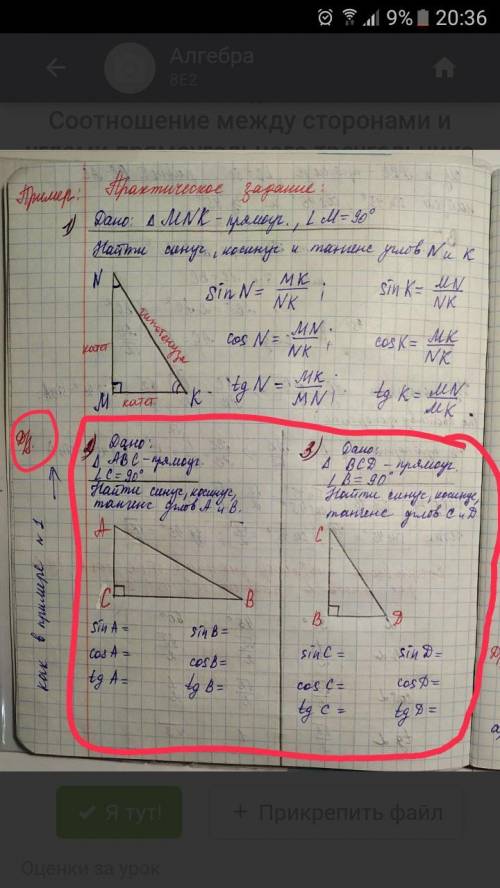 9% 20:36
Алгебра
8Е2
Соотношение между сторонами и
Пример: Практическое задание:
1) Дано: Δ MNK - прямоуг., ∠M=90°
Найти синус, косинус и тангенс углов N и K
N
M
K
катет
катет
гипотенуза
sin N = MK/NK ; sin K = MN/NK
cos N = MN/NK ; cos K = MK/NK
tg N = MK/MN ; tg K = MN/MK
Д/З
как в примере №1
2) Дано:
Δ ABC - прямоуг.
∠C=90°
Найти синус, косинус,
тангенс углов A и B.
A
C
B
sin A = sin B =
cos A = cos B =
tg A = tg B =
3) Дано:
Δ BCD - прямоуг.
∠B=90°
Найти синус, косинус,
тангенс углов C и D
C
B
D
sin C = sin D =
cos C = cos D =
tg C = tg D =
Я тут!
+ Прикрепить файл
Оценки за урок